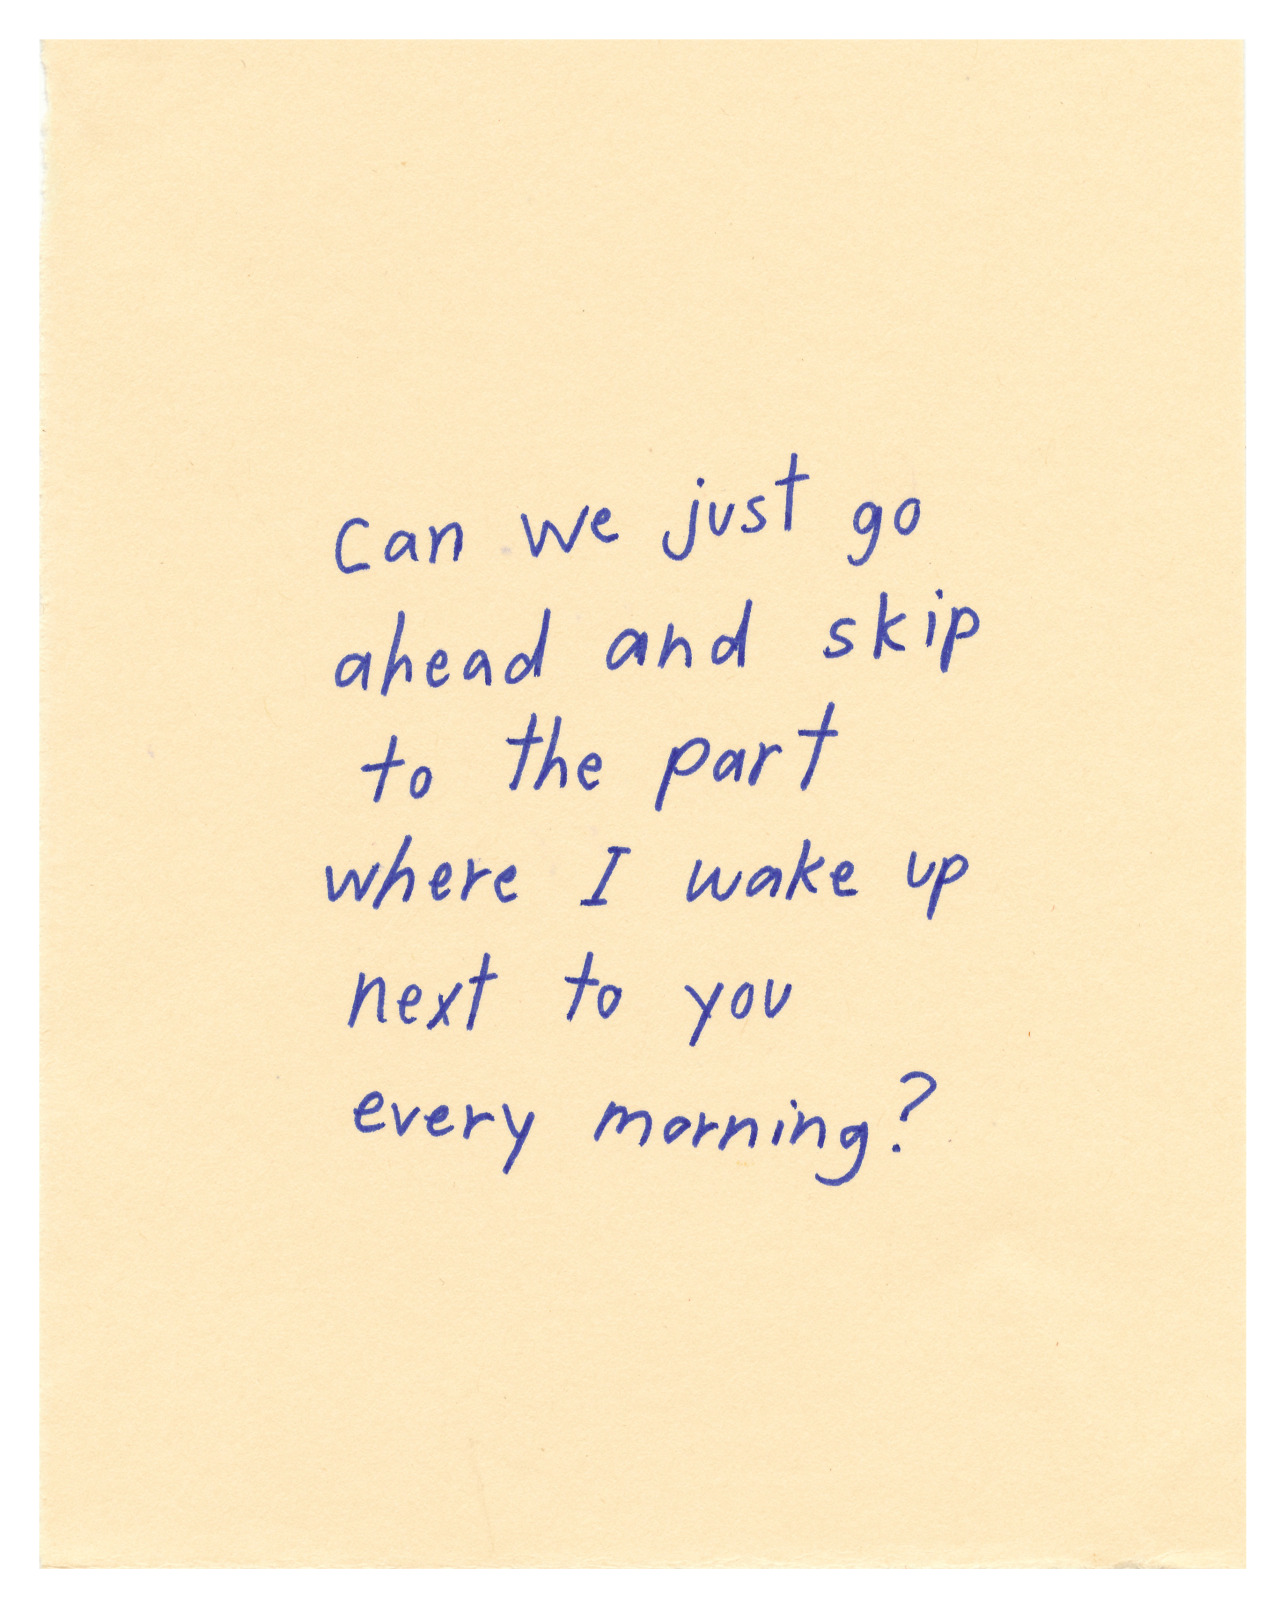 Can we just go
ahead and skip
to the part
where I wake up
next to you
every morning?